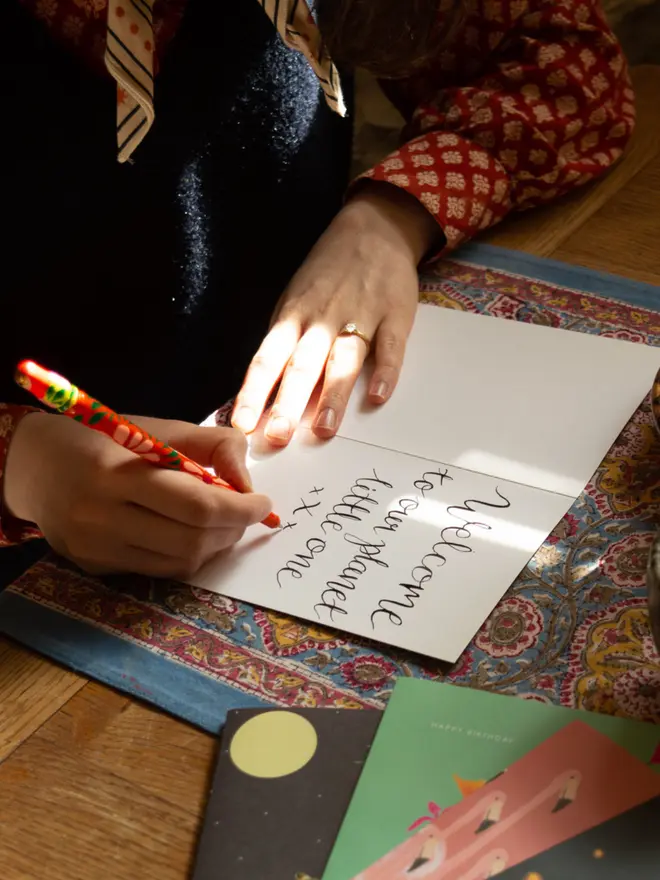 Welcome
to our planet
little one
x x x
HAPPY BIRTHDAY